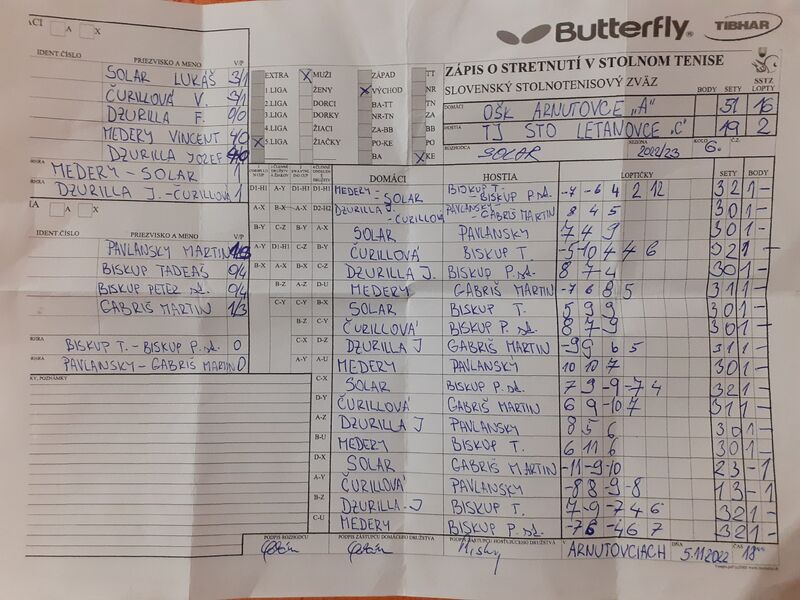 Butterfly TIBHAR
ACI A X
IDENT. ČÍSLO PRIEZVISKO A MENO V/P
ZÁPIS O STRETNUTÍ V STOLNOM TENISE
SLOVENSKÝ STOLNOTENISOVÝ ZVÄZ
BODY SETY LOPTY
SOLAR LUKÁŠ 3/1
ČURILLOVÁ V. 3/1
DZURILLA F. 0/0
MEDERY VINCENT 4/0
DZURILLA JOZEF 4/0
MEDERY - SOLAR 1
DZURILLA J. - ČURILLOVÁ 1
EXTRA X MUŽI ZÁPAD TT
1.LIGA ŽENY X VÝCHOD NR
2.LIGA DORCI BA-TT TN
3.LIGA DORKY NR-TN ZA
4.LIGA ŽIACI ZA-BB BB
X 5.LIGA ŽIAČKY PO-KE PO
BA X KE
DOMÁCI OŠK ARNUTOVCE "A" 51 16
HOSTIA TJ STO LETANOVCE "C" 19 2
ROZHODCA SOLAR SEZÓNA 2022/23 KOLO 6. Č.Z.
A X
IDENT. ČÍSLO PRIEZVISKO A MENO V/P
PAVLANSKY MARTIN 1/3
BISKUP TADEÁŠ 0/4
BISKUP PETER st. 0/4
GABRIŠ MARTIN 1/3
BISKUP T. - BISKUP P. st. 0
PAVLANSKY - GABRIŠ MARTIN 0
KY, POZNÁMKY
DOMÁCI HOSTIA LOPTIČKY SETY BODY
D1-H1 MEDERY - SOLAR BISKUP T. - BISKUP P. st. -7 -6 4 2 12 3 2 1 -
D2-H2 DZURILLA J. - ČURILLOVÁ PAVLANSKY - GABRIŠ MARTIN 8 4 5 3 0 1 -
A-X SOLAR PAVLANSKY 7 4 9 3 0 1 -
B-Y ČURILLOVÁ BISKUP T. -5 -10 4 4 6 3 2 1 -
C-Z DZURILLA J. BISKUP P. st. 8 7 4 3 0 1 -
D-U MEDERY GABRIŠ MARTIN -7 6 8 5 3 1 1 -
SOLAR BISKUP T. 5 9 9 3 0 1 -
ČURILLOVÁ BISKUP P. st. 8 7 9 3 0 1 -
DZURILLA J GABRIŠ MARTIN -9 9 6 5 3 1 1 -
A-U MEDERY PAVLANSKY 10 10 7 3 0 1 -
C-X SOLAR BISKUP P. st. 7 9 -9 -7 4 3 2 1 -
D-Y ČURILLOVÁ GABRIŠ MARTIN 6 9 -10 7 3 1 1 -
A-Z DZURILLA J PAVLANSKY 8 5 6 3 0 1 -
B-U MEDERY BISKUP T. 6 11 6 3 0 1 -
D-X SOLAR GABRIŠ MARTIN -11 -9 -10 2 3 - 1
A-Y ČURILLOVÁ PAVLANSKY -8 8 -9 -8 1 3 - 1
B-Z DZURILLA J BISKUP T. 7 -9 -7 4 6 3 2 1 -
C-U MEDERY BISKUP P. st. -7 6 -4 6 7 3 2 1 -
PODPIS ROZHODCU PODPIS ZÁSTUPCU DOMÁCEHO DRUŽSTVA PODPIS ZÁSTUPCU HOSŤUJÚCEHO DRUŽSTVA V ARNUTOVCIACH DŇA 5.11.2022 ČAS 18